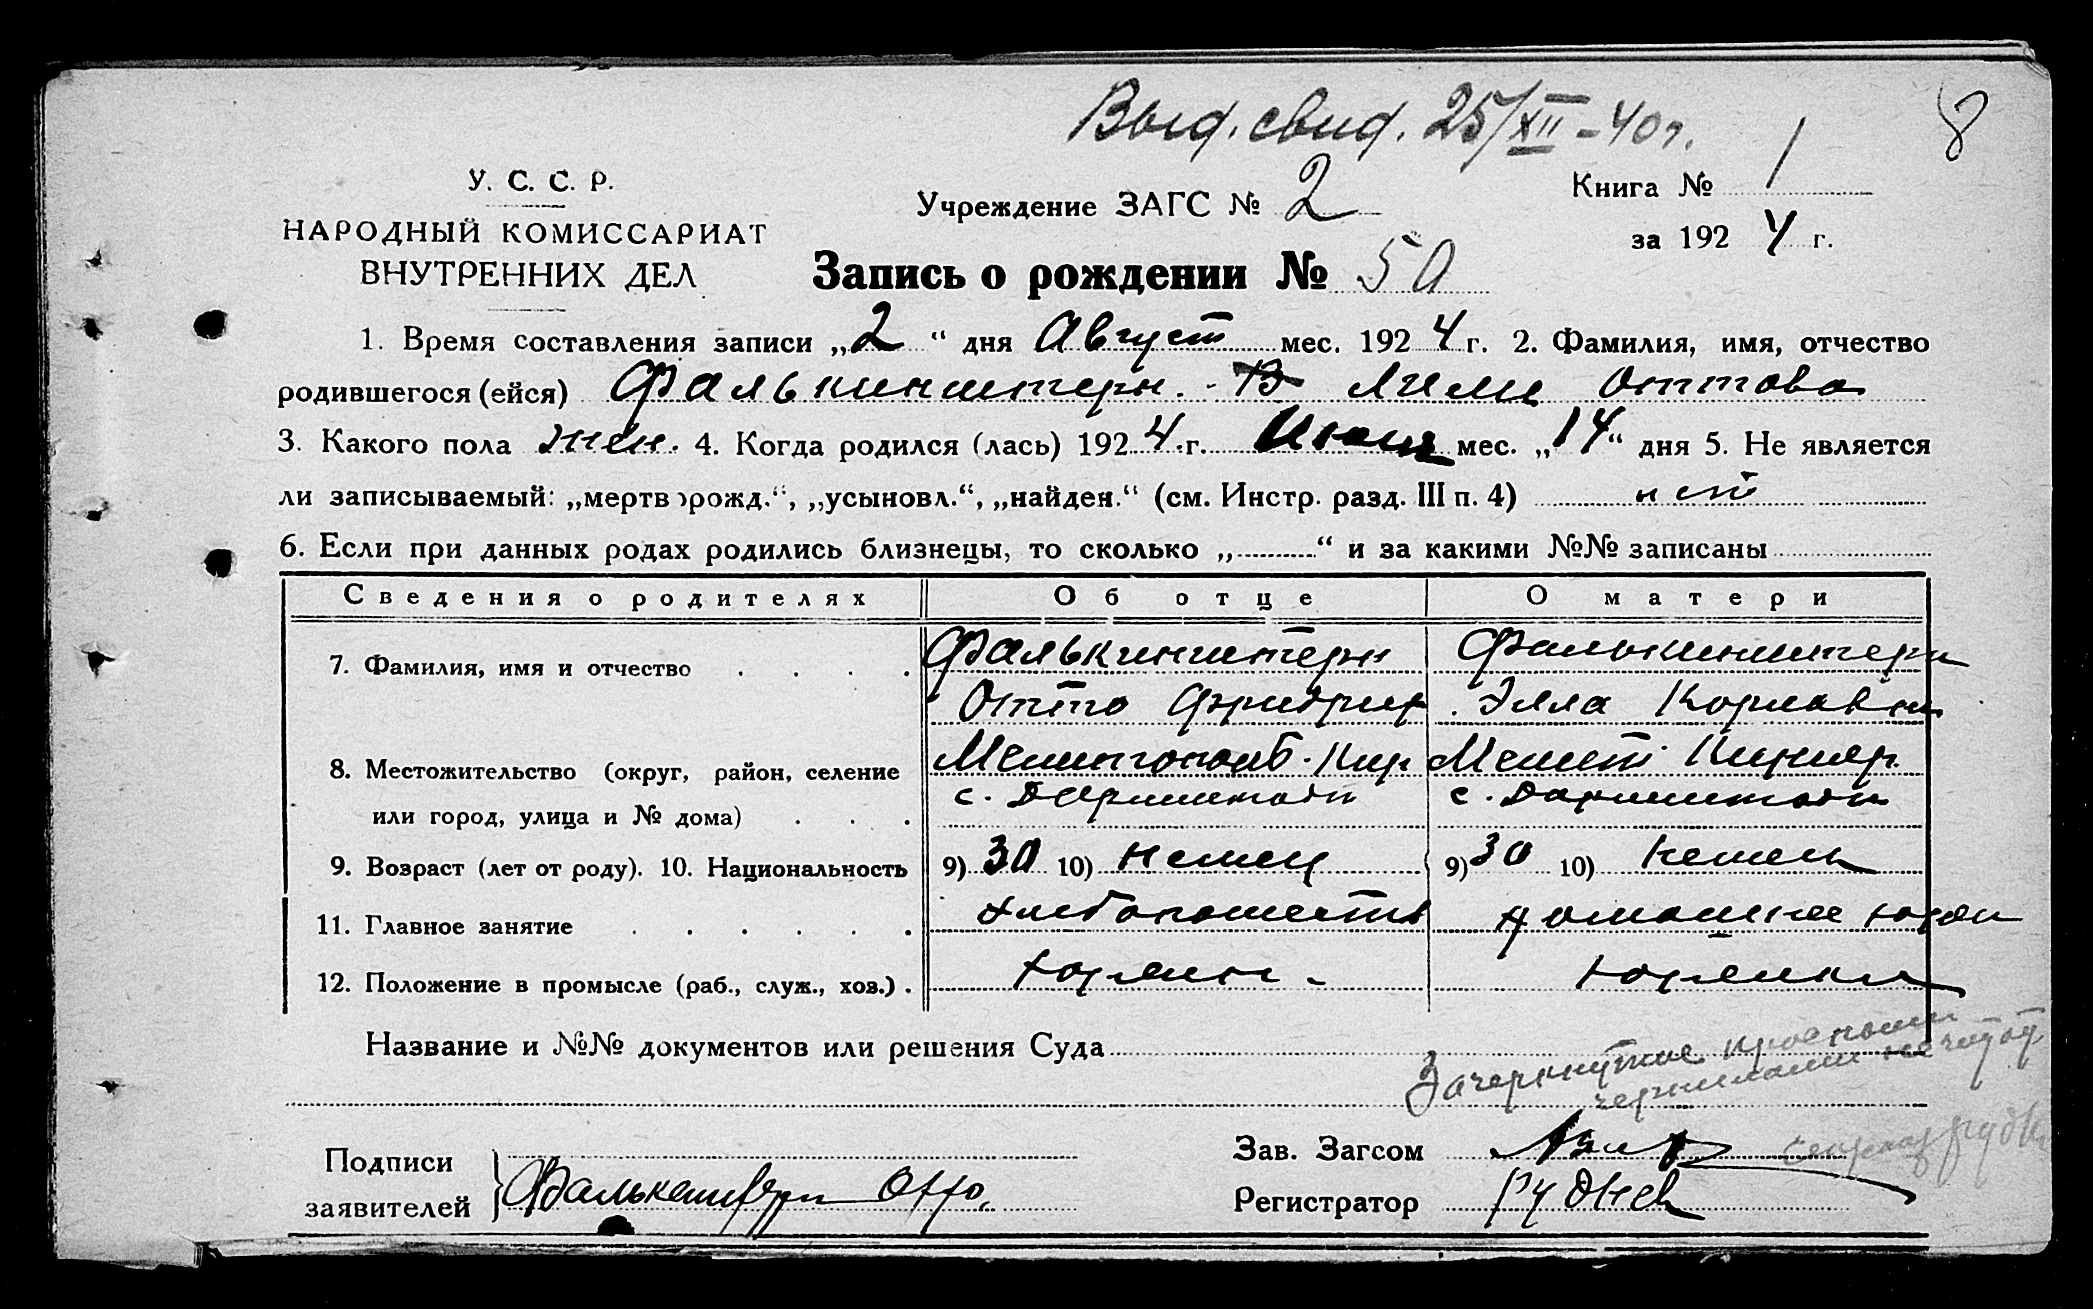 Выд. свид. 25/XII-40г.
8
У. С. С. Р.
НАРОДНЫЙ КОМИССАРИАТ
ВНУТРЕННИХ ДЕЛ
Учреждение ЗАГС № 2
Книга № 1
за 1924 г.
Запись о рождении № 50
1. Время составления записи „2“ дня Август мес. 1924 г. 2. Фамилия, имя, отчество
родившегося (ейся) Фалькинштерн. Лили Оттова
3. Какого пола жен. 4. Когда родился (лась) 1924 г. мес. „14“ дня 5. Не является
ли записываемый: „мертворожд.“, „усыновл.“, „найден.“ (см. Инстр. разд. III п. 4) нет
6. Если при данных родах родились близнецы, то сколько „ “ и за какими №№ записаны
Сведения о родителях Об отце О матери
7. Фамилия, имя и отчество Фалькинштерн Фалькинштерн
Отто Фридрих Элла Карловна
8. Местожительство (округ, район, селение Мелитополь. Кир Мелит.
или город, улица и № дома) с. Дармштадт с. Дармштадт
9. Возраст (лет от роду). 10. Национальность 9) 30 10) немец 9) 30 10) немец
11. Главное занятие хлебопашеств домашнее хозяй
12. Положение в промысле (раб., служ., хоз.) хозяин хозяйка
Название и №№ документов или решения Суда
Зачеркнутое красными
чернилами не читать
Подписи
заявителей Отто.
Зав. Загсом
Регистратор Руднев